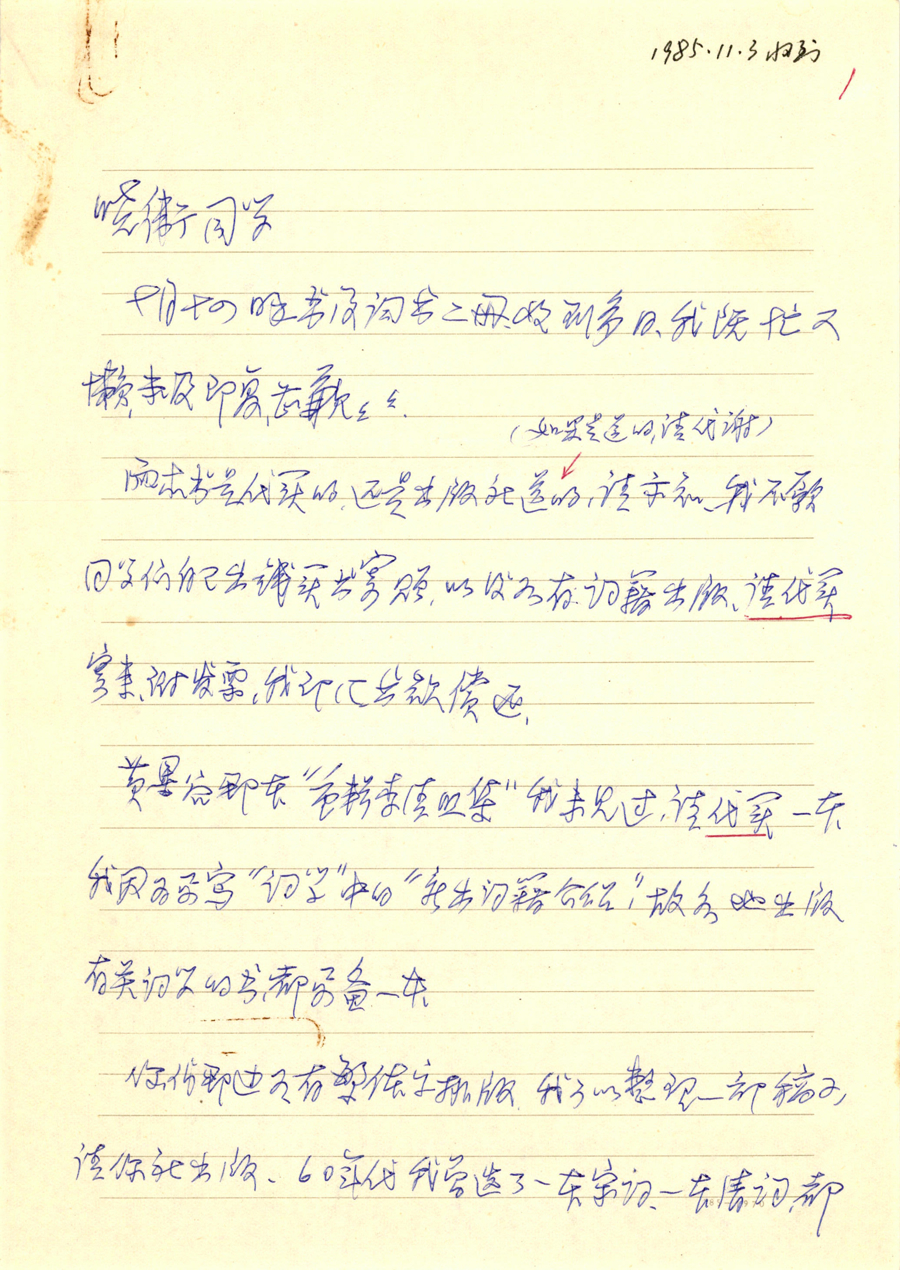 1985.11.3收到
1
晓衡同学
十月十四日来书及词书二册、收到多日、我既忙又
懒,未及即复,甚歉々々.
(如果是送的,请代谢)
两本书是代买的,还是出版社送的,请示知、我不愿
同学们自己出钱买书寄赠,以后如有词籍出版、请代买
寄来、附发票,我即汇书款偿还,
黄墨谷那本“重辑李清照集”我未见过,请代买一本,
我因为要写“词学”中的“新出词籍介绍”,故各地出版
有关词学的书,都要备一本,
你们那边可有繁体字排版,我可以整理一部稿子,
请你社出版、60年代我曾选了一本宋词、一本清词,都